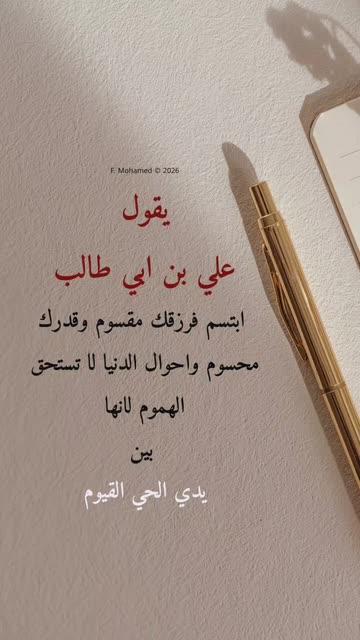 F. Mohamed © 2026
يقول
علي بن ابي طالب
ابتسم فرزقك مقسوم وقدرك
محسوم واحوال الدنيا لا تستحق
الهموم لانها
بين
يدي الحي القيوم